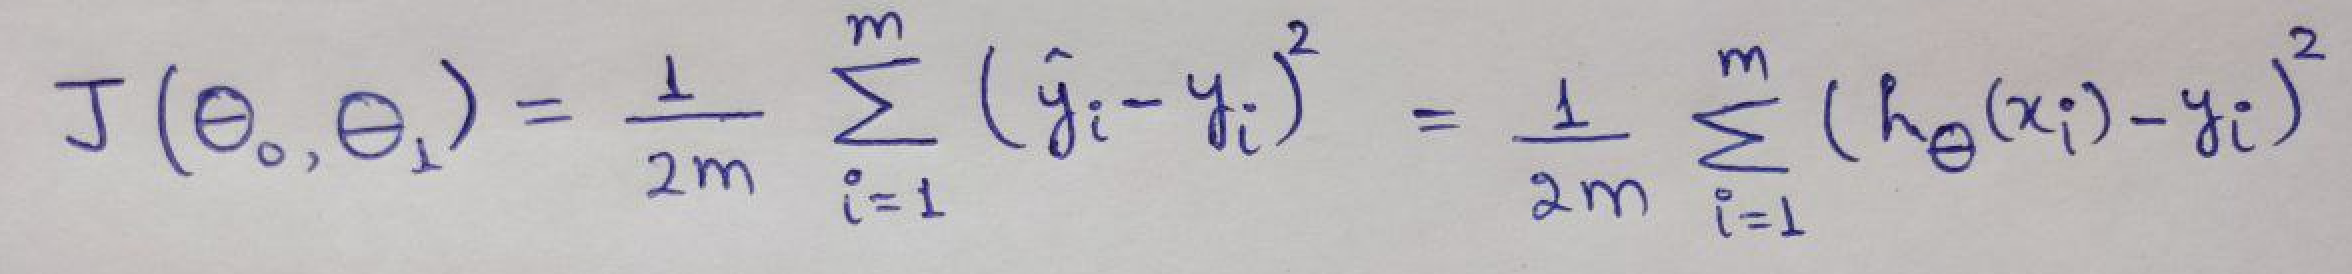 J(θ₀, θ₁) = \frac{1}{2m} \sum_{i=1}^{m} (ŷᵢ - yᵢ)² = \frac{1}{2m} \sum_{i=1}^{m} (h_θ(xᵢ) - yᵢ)²